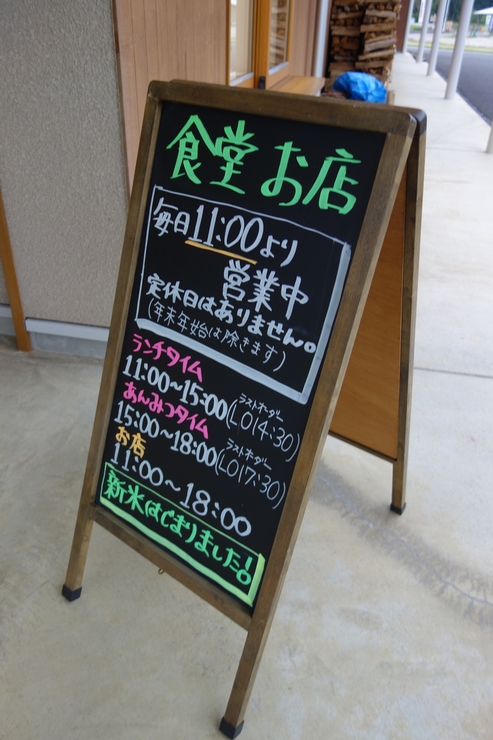 食堂 お店
毎日11:00より
営業中
定休日はありません。
(年末年始は除きます)
ランチタイム
11:00~15:00(ラストオーダー LO14:30)
あんみつタイム
15:00~18:00(ラストオーダー LO17:30)
お店
11:00~18:00
新米はじまりました!